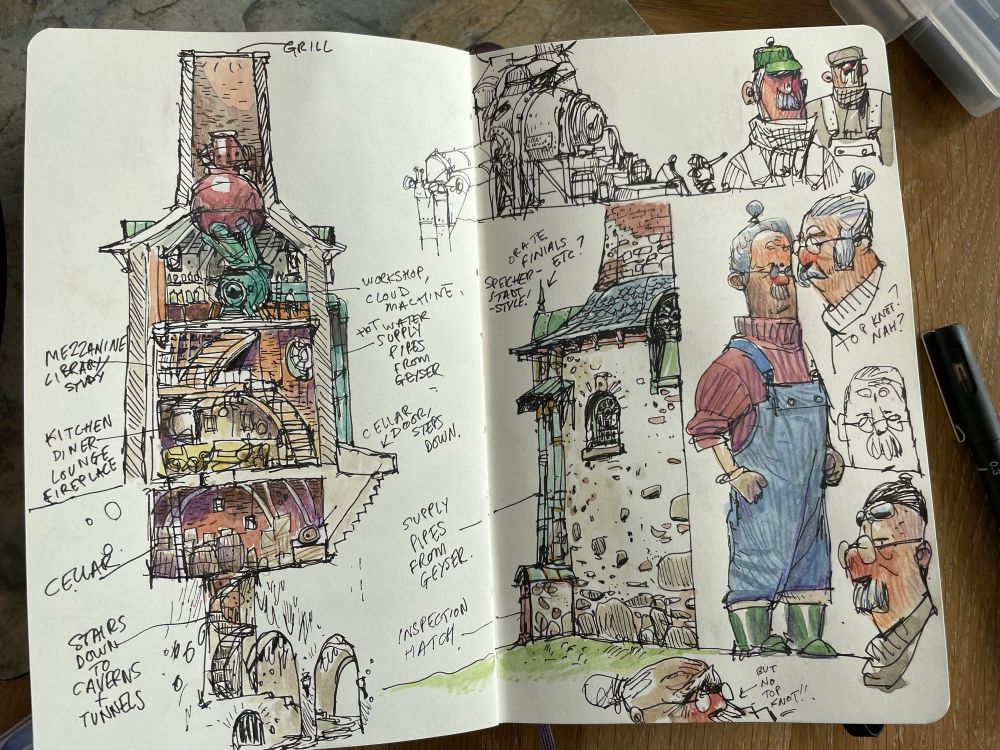 GRILL
WORKSHOP,
CLOUD
MACHINE.
HOT WATER
SUPPLY
PIPES
FROM
GEYSER
MEZZANINE
LIBRARY
STUDY
KITCHEN
DINER
LOUNGE
FIREPLACE
CELLAR
DOOR/
STEPS
DOWN.
CELLAR
SUPPLY
PIPES
FROM
GEYSER.
STAIRS
DOWN
TO
CAVERNS
+
TUNNELS
INSPECTION
HATCH.
FINIALS
ETC.?
SPEICHER-
STADT
-STYLE!
TOP KNOT?
NAH?
BUT
NO
TOP
KNOT!!